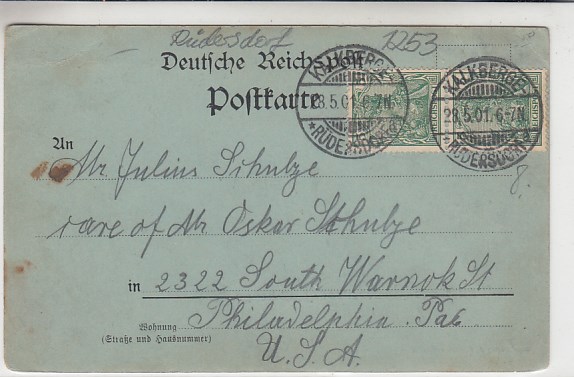 Rüdersdorf 1253
Deutsche Reichspost
Postkarte
KALKBERGE-
28.5.01.6-7N.
*RÜDERSDORF*
KALKBERGE-
28.5.01.6-7N.
*RÜDERSDORF*
REICHSPOST
An
Mr Julius Schulze
care of Mr Oskar Schulze
8.
in 2322 South Warnok St
Wohnung
(Straße und Hausnummer)
Philadelphia Pa
U.S.A.